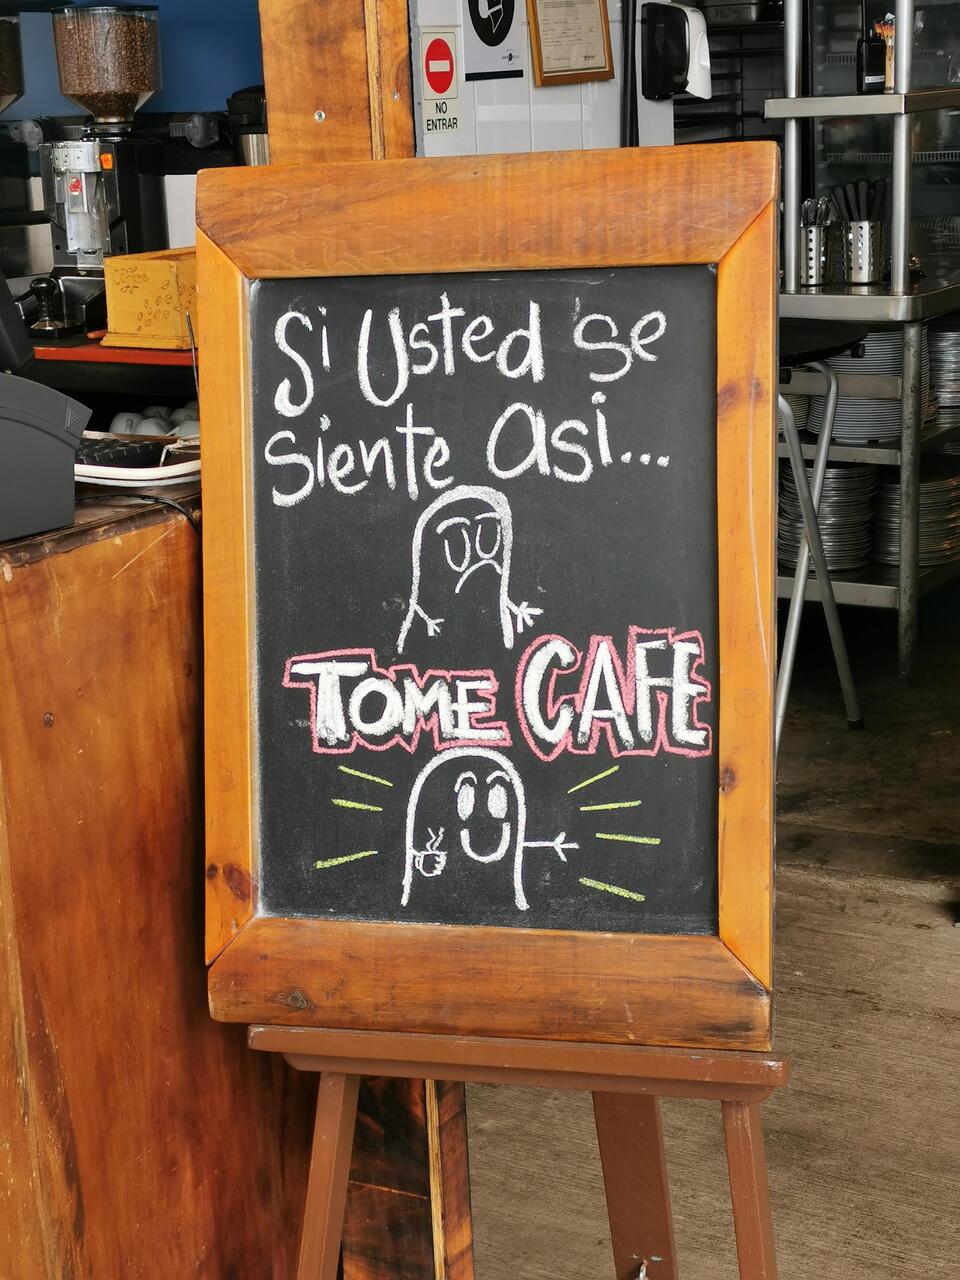 NO
ENTRAR
Coffee
Si Usted se
siente asi...
TOME CAFE